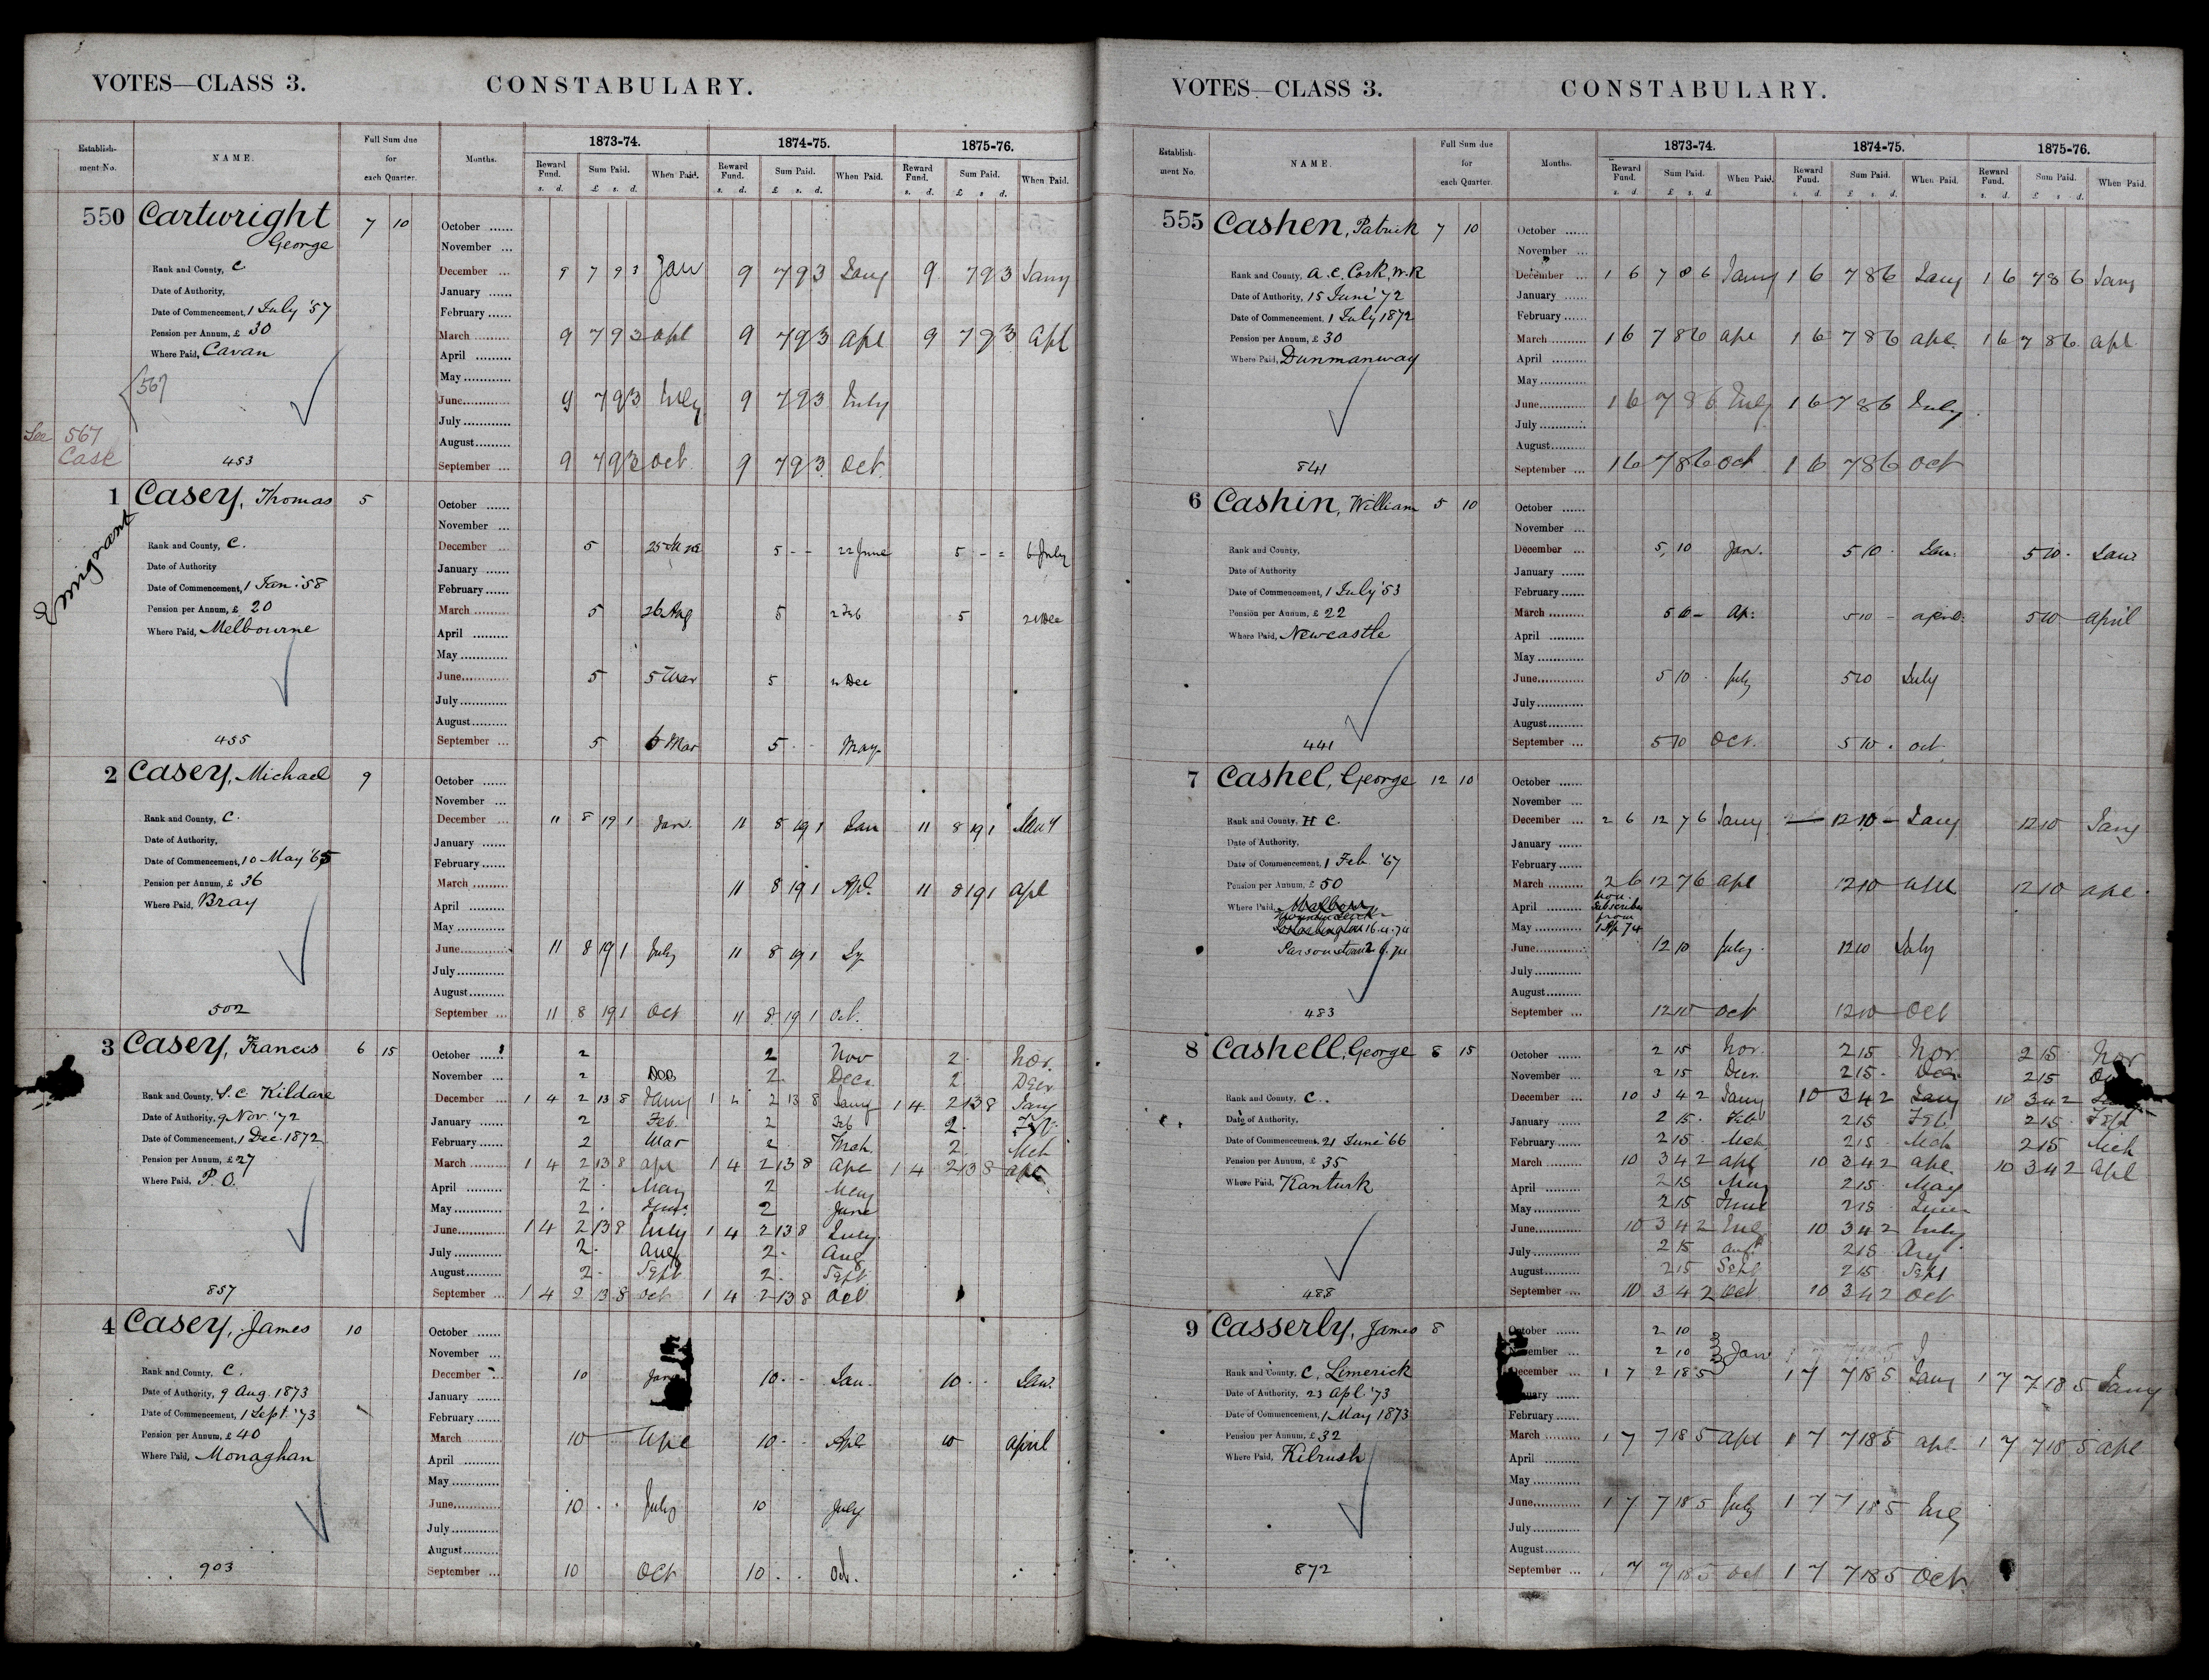 VOTES—CLASS 3. CONSTABULARY.
Establish-ment No. NAME. Full Sum due for each Quarter. Months. 1873-74. 1874-75. 1875-76.
Reward Fund. Sum Paid. When Paid. Reward Fund. Sum Paid. When Paid. Reward Fund. Sum Paid. When Paid.
s. d. £ s. d. s. d. £ s. d. s. d. £ s. d.
550 Cartwright 7 10 October
George November
Rank and County, C December 9 7 9 3 Jan 9 7 9 3 Jany 9 7 9 3 Jany
Date of Authority, January
Date of Commencement, 1 July '57 February
Pension per Annum, £ 30 March 9 7 9 3 apl 9 7 9 3 apl 9 7 9 3 apl
Where Paid, Cavan April
567 May
June 9 7 9 3 July 9 7 9 3 July
July
See 567 August
Case
453 September 9 7 9 3 Oct 9 7 9 3 Oct
1 Casey, Thomas 5 October
Emigrant
November
Rank and County, C. December 5 5 - - 22 June 5 - = 6 July
Date of Authority January
Date of Commencement, 1 Jan. '58 February
Pension per Annum, £ 20 March 5 26 Aug 5 2 Feb 5 21 Dec
Where Paid, Melbourne April
May
June 5 5 Mar 5 Dec
July
August
455 September 5 6 Mar 5 May
2 Casey, Michael 9 October
November
Rank and County, C. December 11 8 19 1 Jan. 11 8 19 1 Jan 11 8 19 1 Jany
Date of Authority, January
Date of Commencement, 10 May '65 February
Pension per Annum, £ 36 March 11 8 19 1 Apl. 11 8 19 1 apl
Where Paid, Bray April
May
June 11 8 19 1 July 11 8 19 1 Jy
July
August
502 September 11 8 19 1 Oct 11 8 19 1 Oct.
3 Casey, Francis 6 15 October 2 2 Nov 2 Nor.
November 2 Dec 2 Decr. 2 Decr
Rank and County, S.C Kildare December 1 4 2 13 8 Jany 1 4 2 13 8 Jany 1 4 2 13 8 Jany
Date of Authority, 9 Nov. '72 January 2 Feb. 2 Feb 2
Date of Commencement, 1 Dec. 1872 February 2 Mar 2 Mch. 2 Mch
Pension per Annum, £ 27 March 1 4 2 13 8 apl 1 4 2 13 8 apl 1 4 2 13 8 apl
Where Paid, P.O. April 2 May 2 May
May 2 June 2 June
June 1 4 2 13 8 July 1 4 2 13 8 July
July 2 Aug 2 Aug
August 2 Sept 2 Sept
857 September 1 4 2 13 8 Oct 1 4 2 13 8 Oct
4 Casey, James 10 October
November
Rank and County, C. December 10 Jan 10 - - Jan. 10 - - Jan.
Date of Authority, 9 Aug. 1873 January
Date of Commencement, 1 Sept. '73 February
Pension per Annum, £ 40 March 10 apl 10 - - Apl 10 april
Where Paid, Monaghan April
May
June 10 July 10 July
July
August
903 September 10 Oct 10 Oct.
VOTES—CLASS 3. CONSTABULARY.
Establish-ment No. NAME. Full Sum due for each Quarter. Months. 1873-74. 1874-75. 1875-76.
Reward Fund. Sum Paid. When Paid. Reward Fund. Sum Paid. When Paid. Reward Fund. Sum Paid. When Paid.
s. d. £ s. d. s. d. £ s. d. s. d. £ s. d.
555 Cashen, Patrick 7 10 October
November
Rank and County, A.C. Cork, W.R December 1 6 7 8 6 Jany 1 6 7 8 6 Jany 1 6 7 8 6 Jany
Date of Authority, 15 June '72 January
Date of Commencement, 1 July 1872 February
Pension per Annum, £ 30 March 1 6 7 8 6 apl 1 6 7 8 6 apl. 1 6 7 8 6 apl.
Where Paid, Dunmanway April
May
June 1 6 7 8 6 July 1 6 7 8 6 July
July
August
841 September 1 6 7 8 6 Oct 1 6 7 8 6 Oct
6 Cashin, William 5 10 October
November
Rank and County, December 5 10 Jan. 5 10 Jan. 5 10 Jan.
Date of Authority January
Date of Commencement, 1 July '53 February
Pension per Annum, £ 22 March 5 10 - Ap: 5 10 - april: 5 10 april
Where Paid, Newcastle April
May
June 5 10 July 5 10 July
July
August
441 September 5 10 Oct. 5 10 Oct
7 Cashel, George 12 10 October
November
Rank and County, H C. December 2 6 12 7 6 Jany 12 10 - Jany 12 10 Jany
Date of Authority, January
Date of Commencement, 1 Feb. '67 February
Pension per Annum, £ 50 March 2 6 12 7 6 apl 12 10 apl 12 10 apl.
Where Paid, April non subscriber
from
May 1 Ap 74
Parsonstown June 12 10 July 12 10 July
July
August
483 September 12 10 Oct 12 10 Oct
8 Cashell, George 8 15 October 2 15 Nov. 2 15 Nov. 2 15 Nov
November 2 15 Decr. 2 15 Decr 2 15
Rank and County, C. December 10 3 4 2 Jany 10 3 4 2 Jany 10 3 4 2
Date of Authority, January 2 15 Feb 2 15 Feb. 2 15 Feb
Date of Commencement, 21 June '66 February 2 15 Mch 2 15 Mch 2 15 Mch
Pension per Annum, £ 35 March 10 3 4 2 apl 10 3 4 2 apl. 10 3 4 2 apl
Where Paid, Kanturk April 2 15 May 2 15 May
May 2 15 June 2 15 June
June 10 3 4 2 July 10 3 4 2 July
July 2 15 augt 2 15 Aug
August 2 15 Sept 2 15 Sept
488 September 10 3 4 2 Oct 10 3 4 2 Oct
9 Casserly, James 8 October 2 10
November 2 10 Jan
Rank and County, C, Limerick December 1 7 2 18 5 1 7 7 18 5 Jany 1 7 7 18 5 Jany
Date of Authority, 23 Apl. '73 January
Date of Commencement, 1 May 1873 February
Pension per Annum, £ 32 March 1 7 7 18 5 apl 1 7 7 18 5 apl 1 7 7 18 5 apl
Where Paid, Kilrush April
May
June 1 7 7 18 5 July 1 7 7 18 5 July
July
August
872 September 1 7 7 18 5 Oct 1 7 7 18 5 Oct.